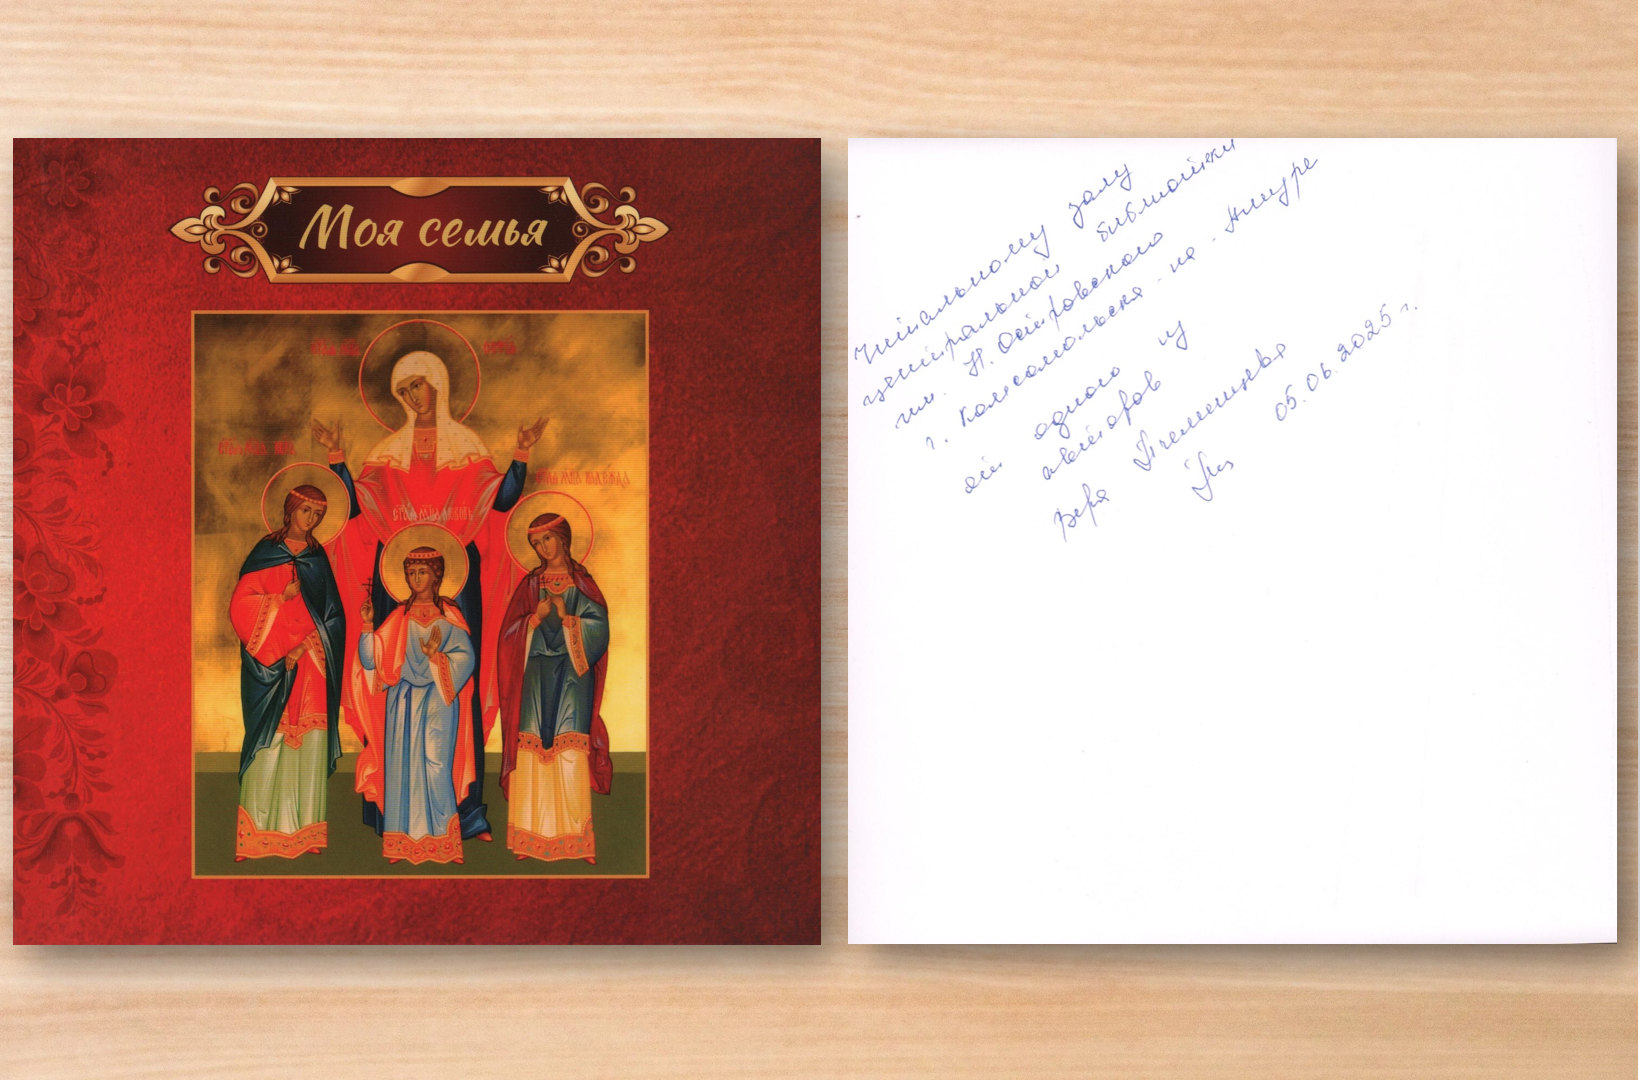 Моя семья
Читальному залу
центральной библиотеки
им. Н. Островского
г. Комсомольска-на-Амуре
от одного из
авторов
Вера
05.06.2025 г.